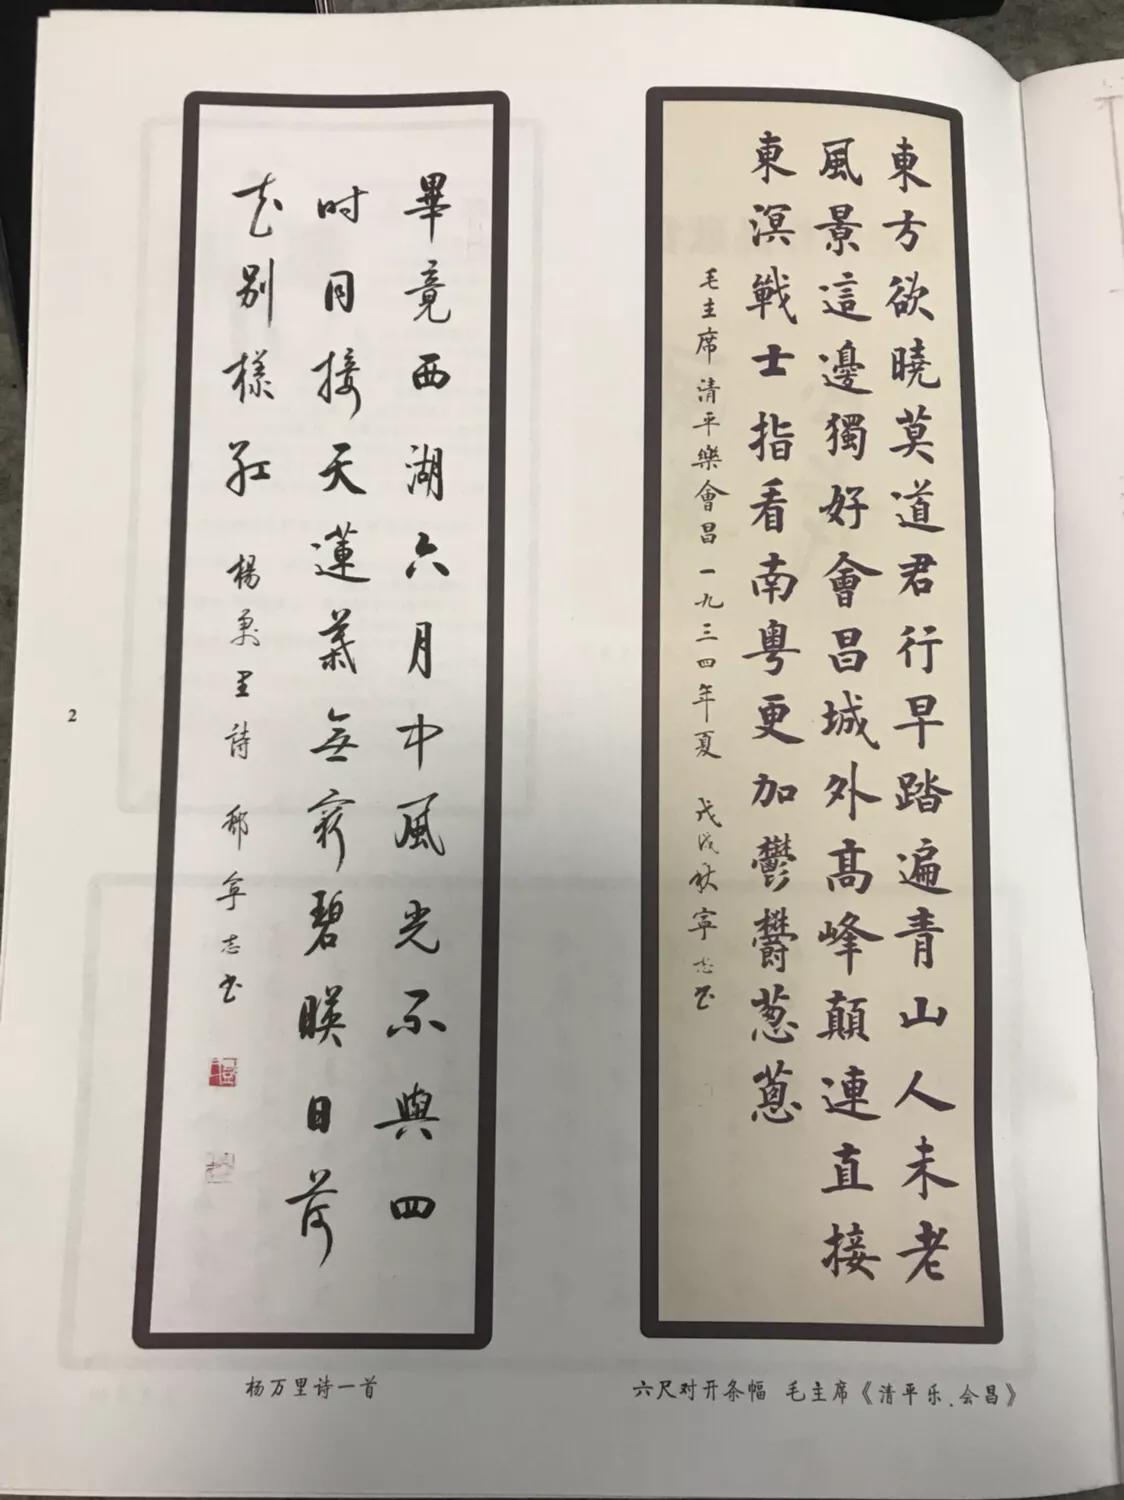 東方欲曉莫道君行早踏遍青山人未老
風景這邊獨好會昌城外髙峰顛連直接
東溟戰士指看南粵更加鬱鬱葱蔥
毛主席清平樂會昌一九三四年夏 戊戌秋寧志书
六尺对开条幅 毛主席《清平乐.会昌》
畢竟西湖六月中風光不與四
时同接天蓮葉無窮碧暎日荷
花别樣红 楊萬里詩 邢寧志书
杨万里诗一首
2